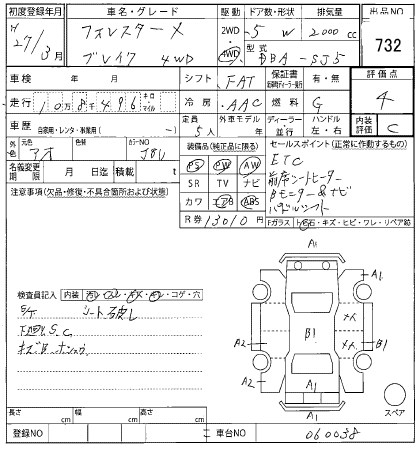 初度登録年月 車名・グレード 駆動 ドア数・形状 排気量 出品NO
H 27/3月 フォレスター 2WD 5 W 2000 cc 732
ブレイク 4WD 4WD 型式 DBA-SJ5
車検 年 月 シフト FAT 保証書 評価点
走行 10万8千496 キロ・マイル 冷房 AAC 燃料 G 4
車歴 自家用・レンタ・事業用( ー ) 定員 5人 外車モデル 年 ディーラー・並行 ハンドル 左・右 内装評価 C
外色 元色 アオ 色替 カラーNO 装備品(純正品に限る) セールスポイント(正常に作動するもの)
名義変更期限 月 日迄 積載 t PS PW AW ETC
注意事項(欠品・修復・不具合箇所および状態) SR TV ナビ 前席シートヒーター
カワ エアB ABS Pモニター&ナビ
R券 13010円 パドルシフト
Fガラス
検査員記入 内装 コゲ・穴
シート破レ
S.C
A1
A1
A2 B1 B1
A2 A1
A1
スペア
長さ cm 幅 cm 高さ cm
登録NO 車台NO 060038